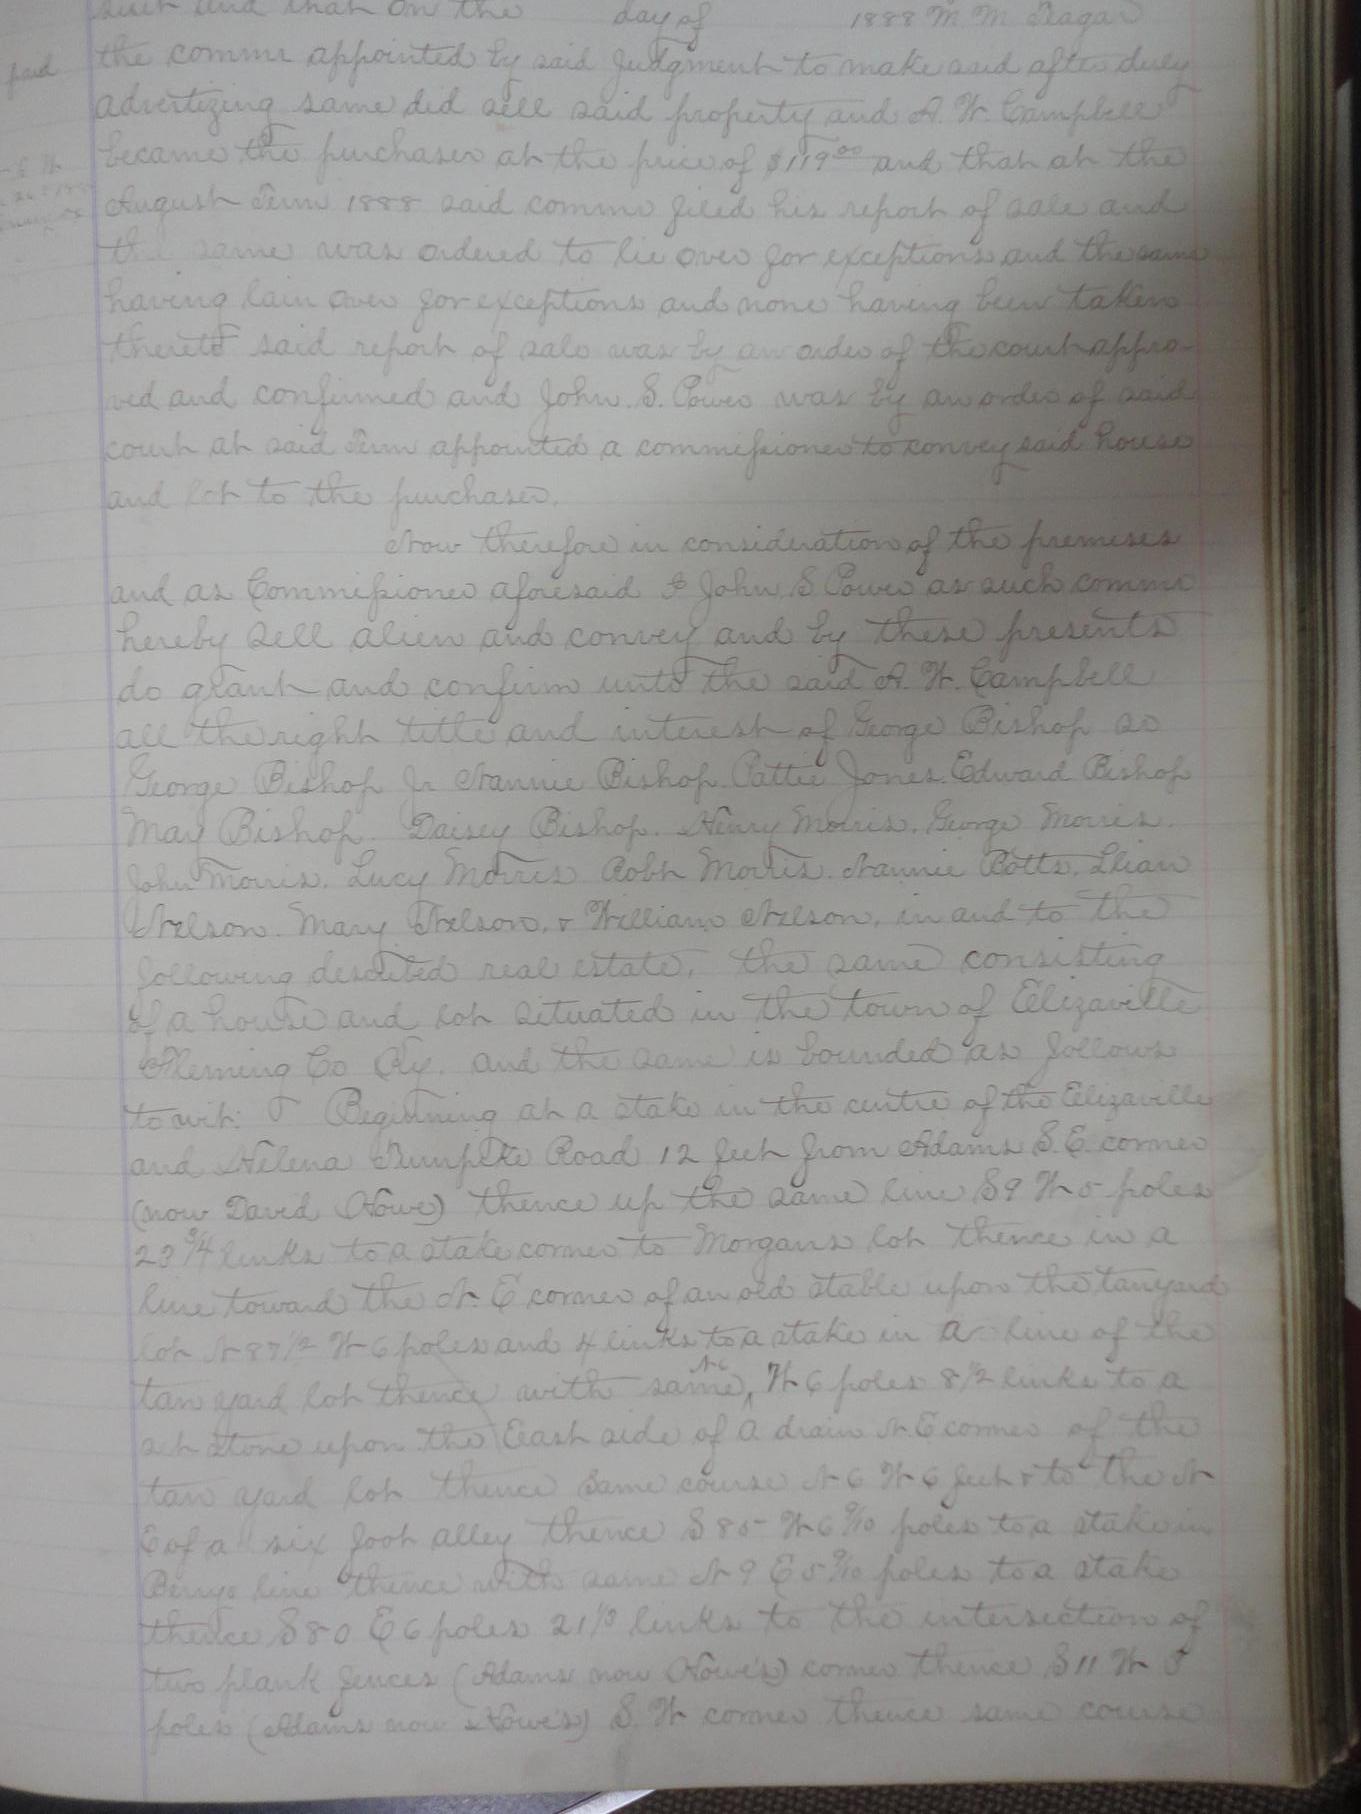 such and that on the day of 1888 M. M. Teagar
paid
the commr appointed by said Judgment to make said after duly
advertizing same did sell said property and A. W. Campbell
became the purchaser at the price of $119 00 and that at the
August Term 1888 said commr filed his report of sale and
the same was ordered to lie over for exceptions and the same
having lain over for exceptions and none having been taken
thereto said report of sale was by an order of the court appro-
ved and confirmed and John. S. Power was by an order of said
court at said Term appointed a commissioner to convey said house
and lot to the purchaser.
Now therefore in consideration of the premises
and as Commissioner aforesaid I John S Power as such commr
hereby sell alien and convey and by these presents
do grant and confirm unto the said A. W. Campbell
all the right title and interest of George Bishop sr
George Bishop Jr Nannie Bishop. Pattie Jones. Edward Bishop
May Bishop. Daisey Bishop. Henry Morris. George Morris.
John Morris. Lucy Morris Robt Morris. Nannie Botts. Lilian
Nelson. Mary Nelson. & William Nelson, in and to the
following described real estate, the same consisting
of a house and lot situated in the town of Elizaville
Fleming Co Ky. and the same is bounded as follows
to wit: Beginning at a stake in the centre of the Elizaville
and Helena Turnpike Road 12 feet from Adams S. E. corner
(now David Howe) thence up the same line S 9 W 5 poles
23 3/4 links to a stake corner to Morgans lot thence in a
line toward the N. E corner of an old stable upon the tanyard
lot N 87 1/2 W 6 poles and 4 links to a stake in a line of the
tan yard lot thence with same, N 6 W 6 poles 8 1/2 links to a
set stone upon the East side of a drain N. E corner of the
tan yard lot thence same course N 6 W 6 feet & to the N
E of a six foot alley thence S 85 W 6 9/10 poles to a stake in
Berrys line thence with same N 9 E 5 9/10 poles to a stake
thence S 80 E 6 poles 21 1/3 links to the intersection of
two plank fences (Adams now Howe's) corner thence S 11 W 5
poles (Adams now Howe's) S. W corner thence same course